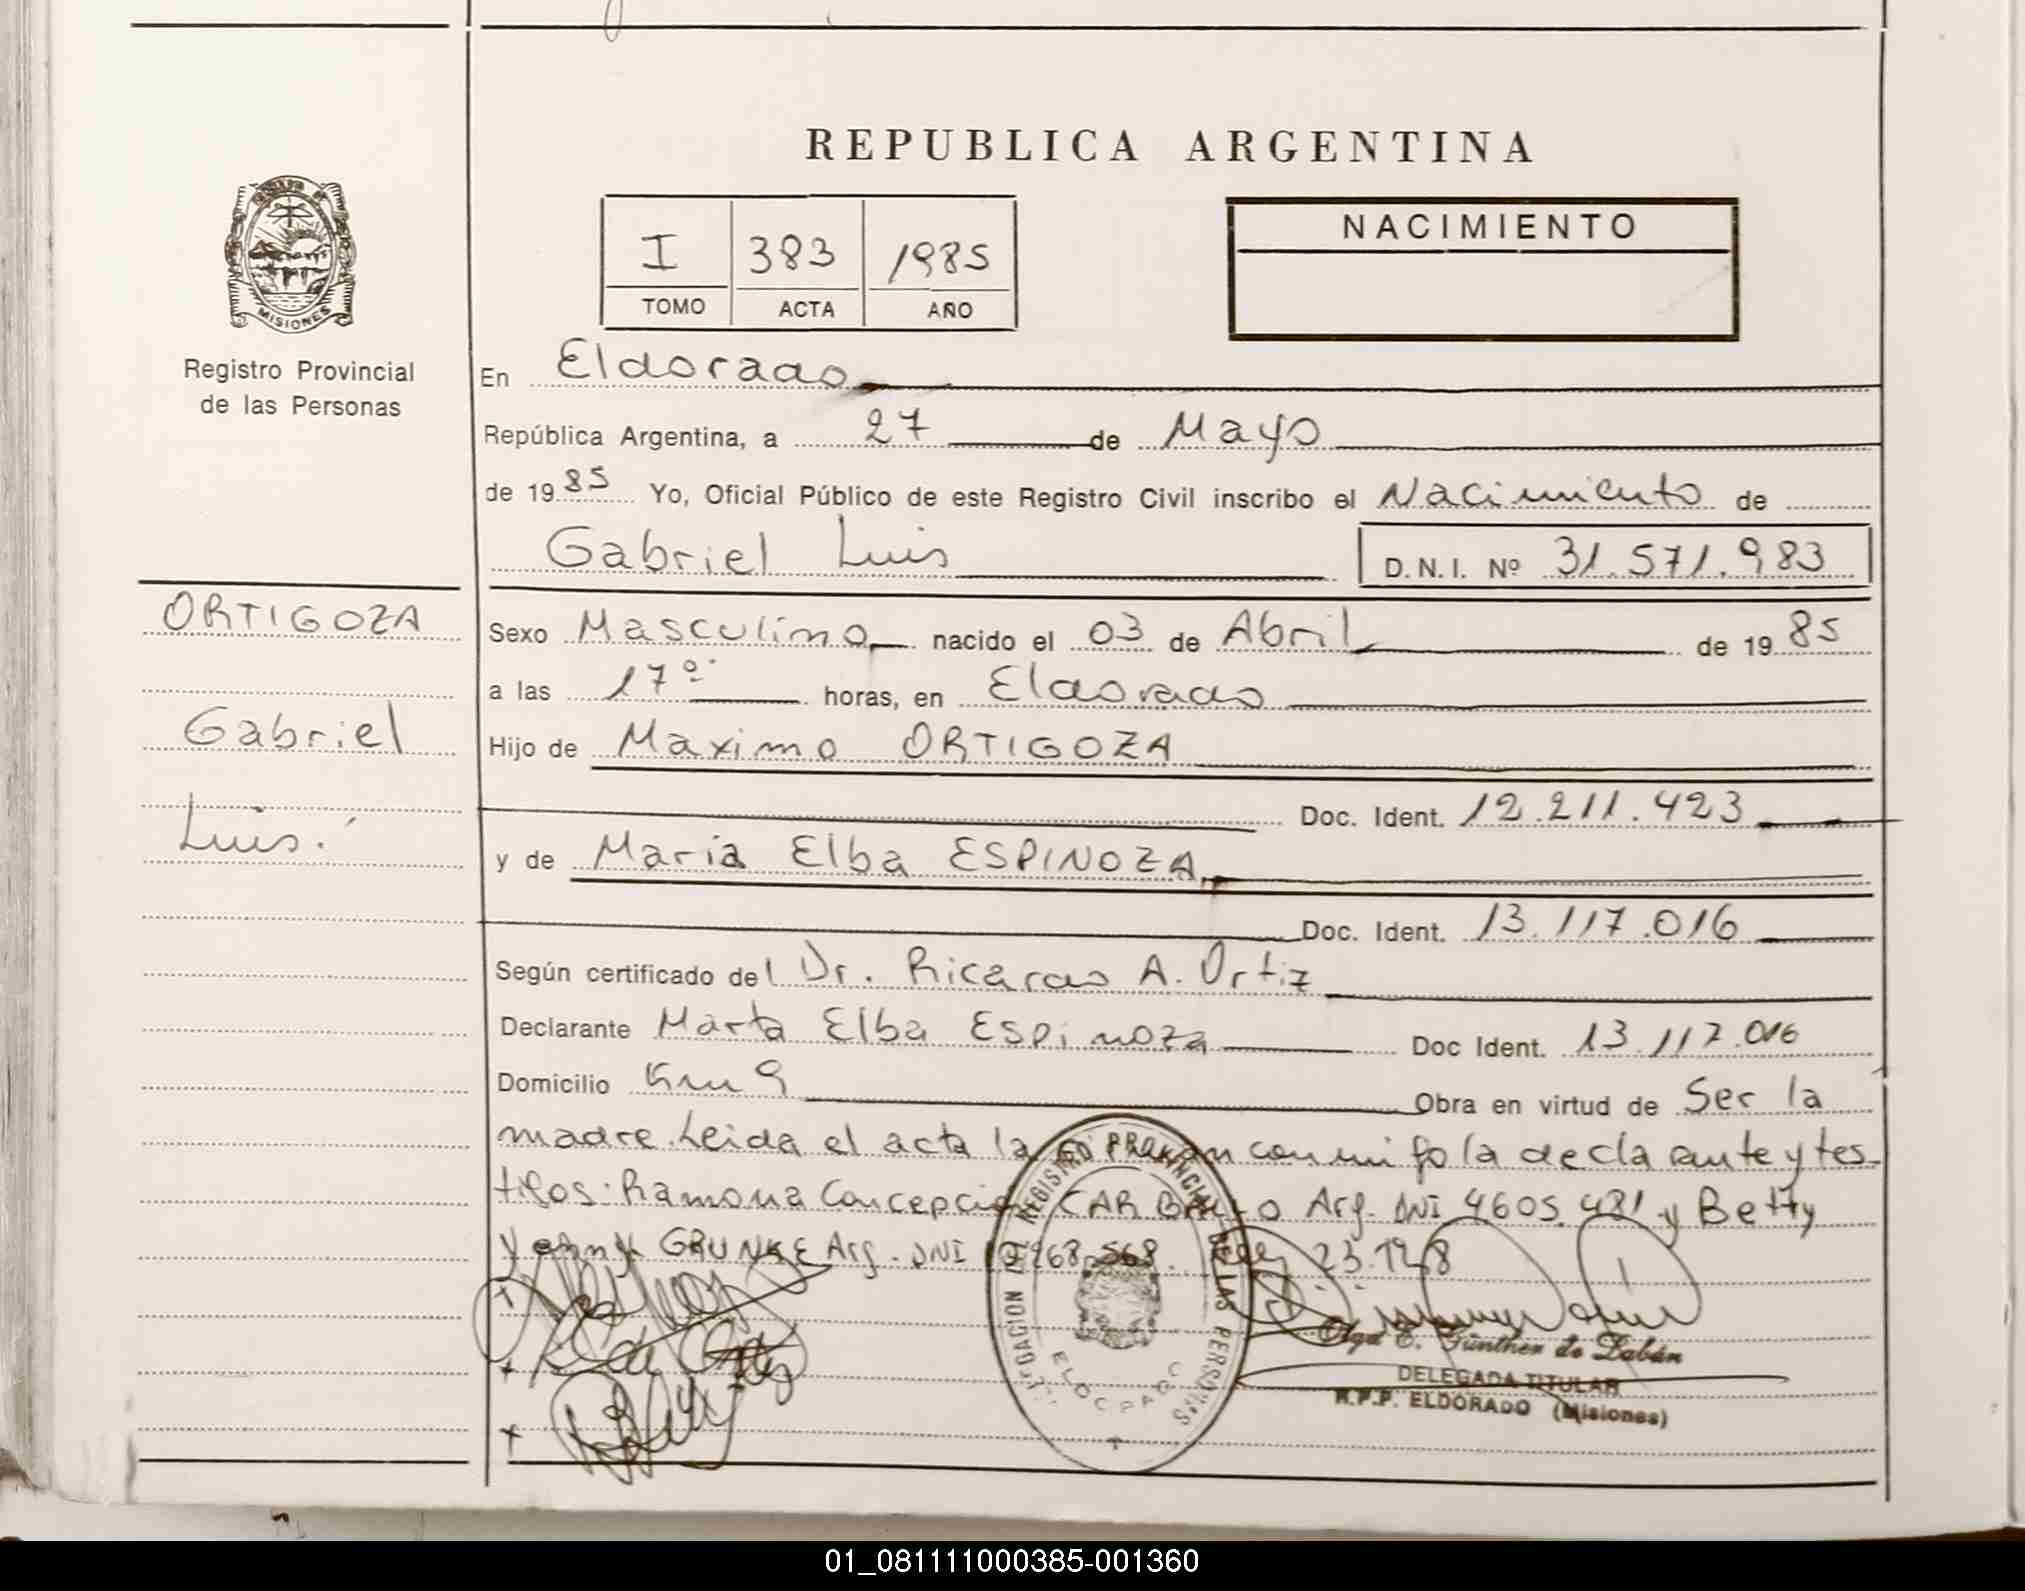 REPUBLICA ARGENTINA
I 383 1985
TOMO ACTA AÑO
NACIMIENTO
MISIONES
Registro Provincial
de las Personas
En Eldorado
República Argentina, a 27 de Mayo
de 1985 Yo, Oficial Público de este Registro Civil inscribo el Nacimiento de
Gabriel Luis D.N.I. Nº 31.571.983
ORTIGOZA
Gabriel
Luis.
Sexo Masculino nacido el 03 de Abril de 1985
a las 17º horas, en Eldorado
Hijo de Maximo ORTIGOZA
Doc. Ident. 12.211.423
y de Maria Elba ESPINOZA
Doc. Ident. 13.117.016
Según certificado del Dr. Ricardo A. Ortiz
Declarante Marta Elba Espinoza Doc Ident. 13.117.016
Domicilio Km 9 Obra en virtud de Ser la
madre. Leida el acta la conmigo la declarante y tes-
tigos: Ramona Concepcion Arg. DNI 4605.481 y Betty
GRUNKE Arg. DNI 268.568. 23.128
DELEGACION DEL REGISTRO PROVINCIAL DE LAS PERSONAS
Olga E. Günther de Labán
DELEGADA TITULAR
R.P.P. ELDORADO (Misiones)
01_081111000385-001360